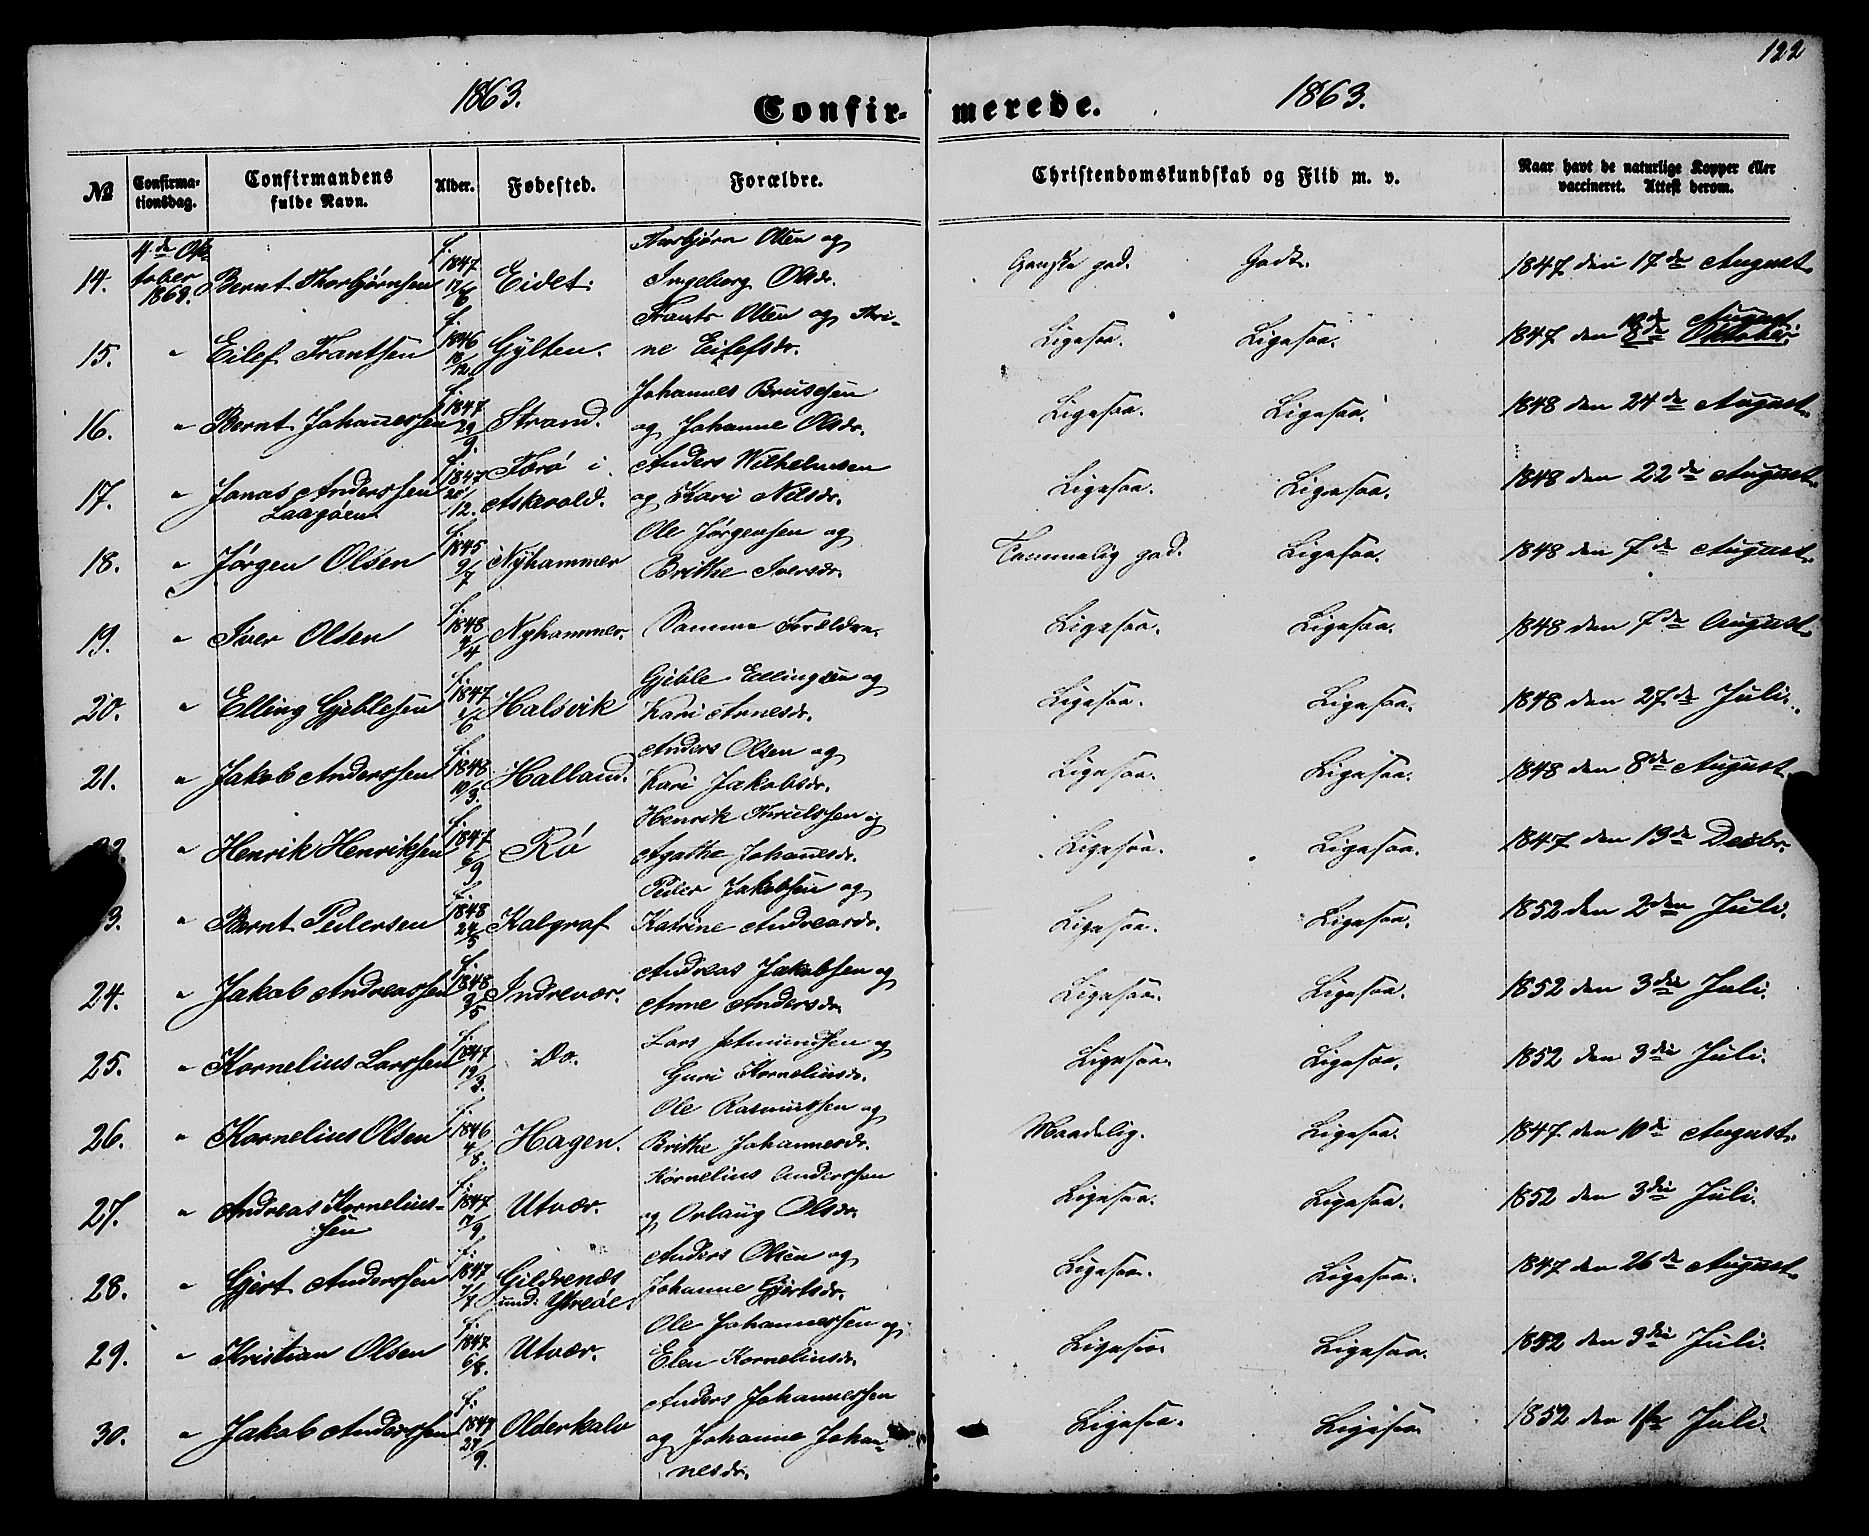 122
1863. 1863.
Confir- merede.
№ Confirma-tionsdag. Confirmandens fulde Navn. Alder. Fødested. Forældre. Christendomskundskab og Flid m. v. Naar havt de naturlige Kopper eller vaccineret. Attest derom.
4de Ok- f. Thorbjørn Olsen og
14. tober 1863. Bernt Thorbjørnsen 1847 17/6 Eidet. Ingeborg Olsdr. Ganske god. Godt. 1847 den 17de August.
f. Frants Olsen og Thri-
15. " Eilef Frantsen 1846 Gylten. ne Eilefsdr. Ligesaa. Ligesaa. 1847 den 8de Oktober.
18de August
f. Johannes Brusesen
16. " Bernt Johannessen 1847 29/9. Strand. og Johanne Olsdr. Ligesaa. Ligesaa. 1848 den 24de August.
f. Færø i Anders Wilhelmsen
17. " Jonas Anderssen 1847 /12. Askevold. og Kari Nilsdr. Ligesaa. Ligesaa. 1848 den 22de August.
Laagøen
f. Ole Jørgensen og
18. " Jørgen Olsen 1845 9/7 Nyhammer Brithe Iversdr. Temmelig god. Ligesaa. 1848 den 7de August.
19. " Iver Olsen f. 1848 4/4 Nyhammer. Samme Forældre. Ligesaa. Ligesaa. 1848 den 7de August.
f. Gjeble Ellingsen og
20. " Elling Gjeblesen 1847 /6 Halsvik Kari Arnesdr. Ligesaa. Ligesaa. 1848 den 27de Juli.
f. Anders Olsen og
21. " Jakob Anderssen 1848 10/3. Halland. Kari Jakobsdr. Ligesaa. Ligesaa. 1848 den 8de August.
f. Henrik Thrulssen og
22. " Henrik Henriksen 1847 6/9 Rø Agathe Johannesdr. Ligesaa. Ligesaa. 1847 den 13de Decbr.
f. Peder Jakobsen og
3. " Bernt Pedersen 1848 24/5 Kalgraf Katrine Andreasdr. Ligesaa. Ligesaa. 1852 den 2den Juli.
f. Andreas Jakobsen og
24. " Jakob Andreassen 1848 9/5 Indrevær. Anne Andersdr. Ligesaa. Ligesaa. 1852 den 3die Juli.
f. Lars Amundsen og
25. " Kornelius Larssen 1847 19/3. Do. Guri Korneliusdr. Ligesaa. Ligesaa. 1852 den 3die Juli.
f. Ole Rasmussen og
26. " Kornelius Olsen 1846 4/8. Hagen. Brithe Johannesdr. Maadelig. Ligesaa. 1847 den 10de August.
f. Kornelius Anderssen
27. " Andreas Kornelius- 1847 /9 Utvær. og Orlaug Olsdr. Ligesaa. Ligesaa. 1852 den 3die Juli.
sen
f. Anders Olsen og
28. " Gjert Anderssen 1847 7/7 Gildrenæs Johanne Gjertsdr. Ligesaa. Ligesaa. 1847 den 26de August.
und: Ytreøe
f. Ole Johannessen og
29. " Kristian Olsen 1847 6/8. Utvær. Elen Korneliusdr. Ligesaa. Ligesaa. 1852 den 3die Juli.
f. Anders Johannessen
30. " Jakob Anderssen 1847 27/9. Olderkalv og Johanne Johan- Ligesaa. Ligesaa. 1852 den 1ste Juli.
nesdr.